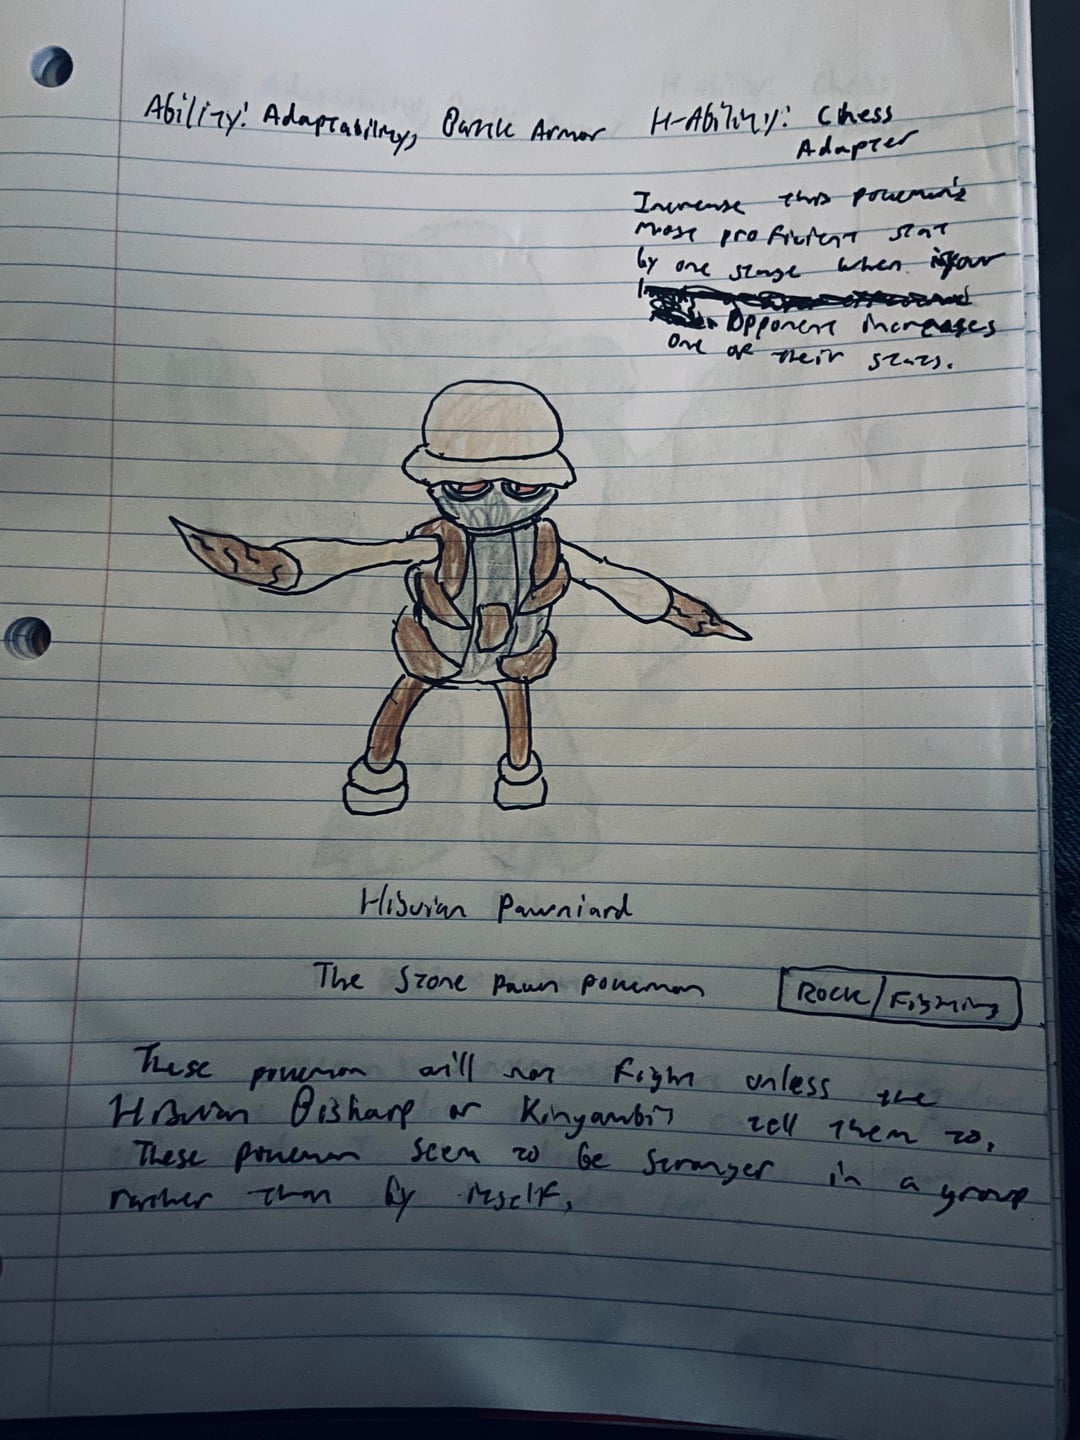 Ability: Adaptability, Battle Armor
H-Ability: Chess
Adapter
Increase this pokemon's
most proficient stat
by one stage when your
Opponent increases
one of their stats.
Hisuian Pawniard
The Stone Pawn pokemon
Rock/Fighting
These pokemon will not fight unless the
Hisuian Bisharp or Kingambit tell them to.
These pokemon seem to be stronger in a group
rather than by itself.